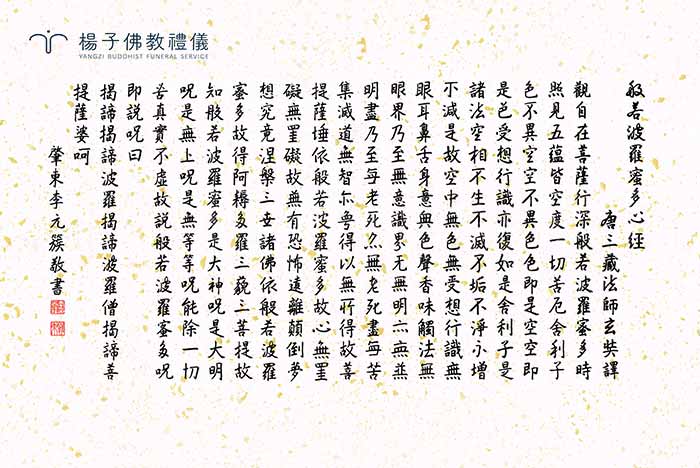 楊子佛教禮儀
YANGZI BUDDHIST FUNERAL SERVICE
般若波羅蜜多心經
唐三藏法師玄奘譯
觀自在菩薩行深般若波羅蜜多時
照見五蘊皆空度一切苦厄舍利子
色不異空空不異色色即是空空即
是色受想行識亦復如是舍利子是
諸法空相不生不滅不垢不淨不增
不減是故空中無色無受想行識無
眼耳鼻舌身意無色聲香味觸法無
眼界乃至無意識界无無明亦無無
明盡乃至無老死亦無老死盡無苦
集滅道無智亦無得以無所得故菩
提薩埵依般若波羅蜜多故心無罣
礙無罣礙故無有恐怖遠離顛倒夢
想究竟涅槃三世諸佛依般若波羅
蜜多故得阿耨多羅三藐三菩提故
知般若波羅蜜多是大神呪是大明
呪是無上呪是無等等呪能除一切
苦真實不虛故說般若波羅蜜多呪
即說呪曰
揭諦揭諦波羅揭諦波羅僧揭諦菩
提薩婆呵
肇東李元簇敬書